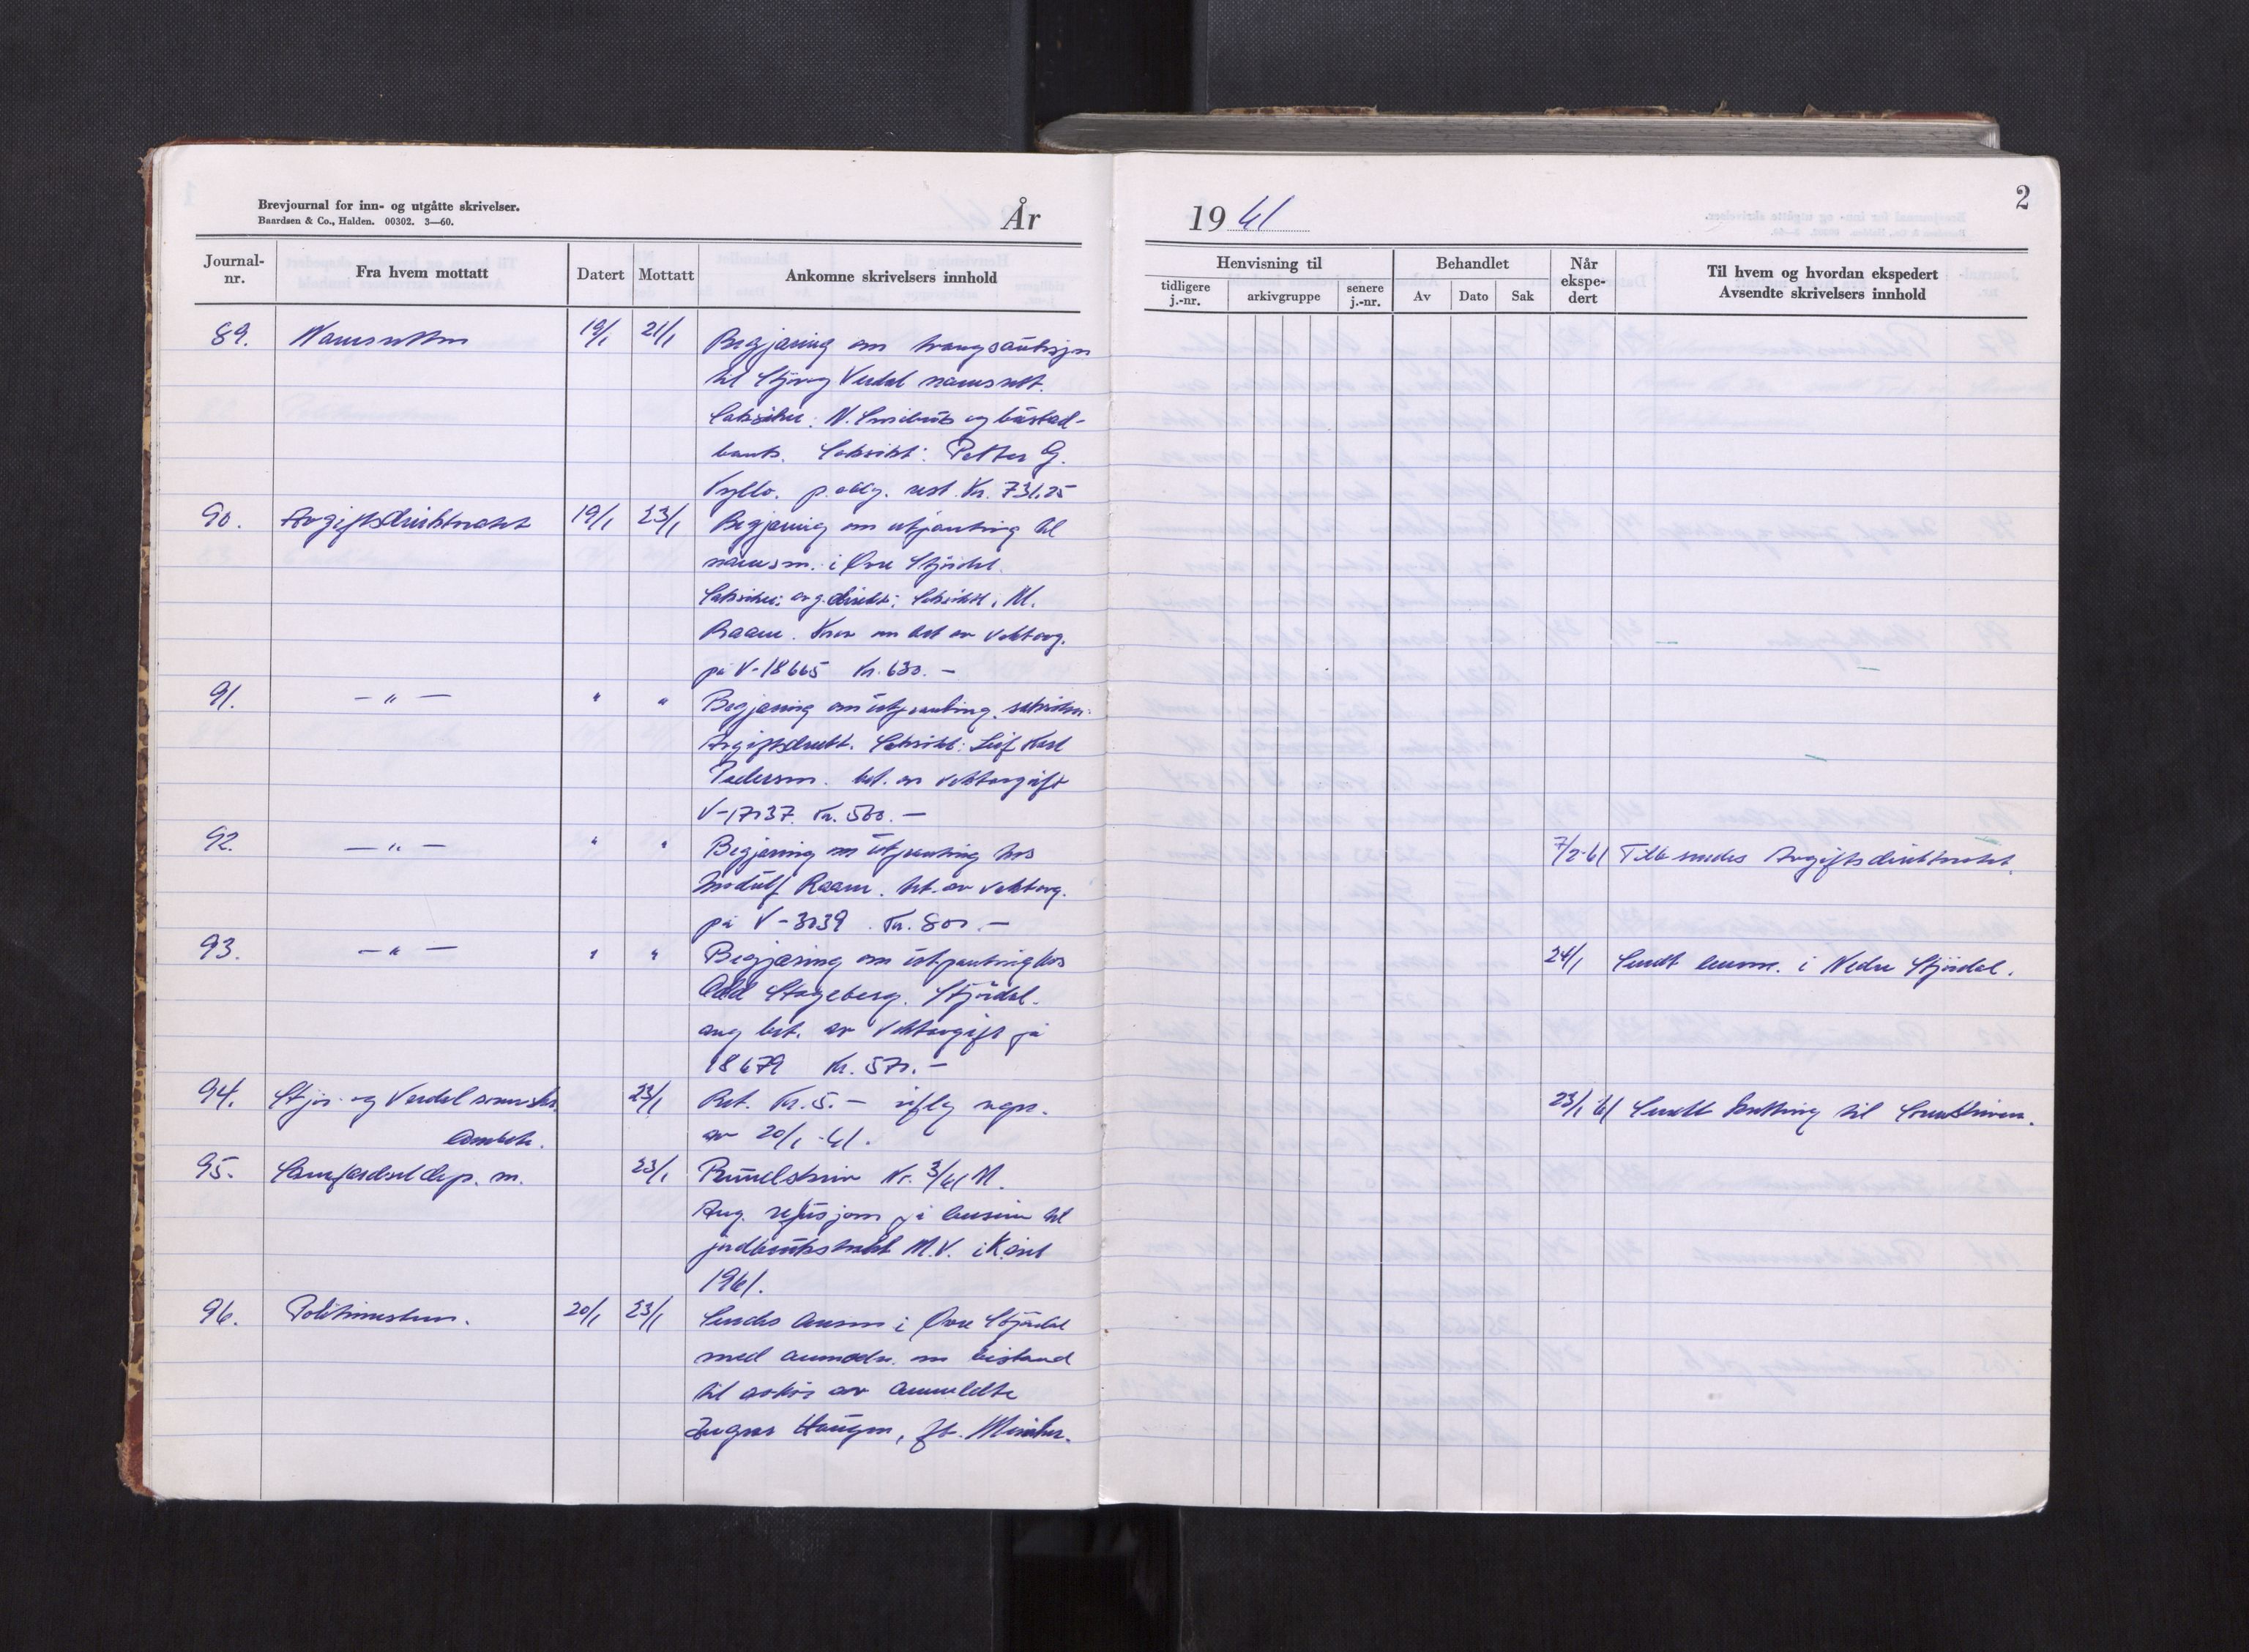 Brevjournal for inn- og utgåtte skrivelser.
Baardsen & Co., Halden. 00302. 3—60.
År
1961
2
Journal-nr.
Fra hvem mottatt
Datert
Mottatt
Ankomne skrivelsers innhold
Henvisning til
tidligere j.-nr.
arkivgruppe
senere j.-nr.
Behandlet
Av
Dato
Sak
Når ekspe-dert
Til hvem og hvordan ekspedert
Avsendte skrivelsers innhold
89. Namsretten 19/1 21/1 Begjæring om
til Stjør og Verdal namsrett.
Saksøker: N.
bank. Saksøkt: Petter G.
Kr. 731,25
90. Avgiftsdirektoratet 19/1 23/1 Begjæring om utpanting til
namsm. i Øvre Stjørdal.
Saksøker: avg.direkt: Saksøkt: M.
Raaen. Krav om bet av vektavg.
på V-18665 Kr. 630.—
91. — " — " " Begjæring om utpanting. saksøker:
Avgiftsdirekt. Saksøkt: Leif
Pedersen. bet. av vektavgift
Kr. 500.—
92. — " — " " Begjæring om utpanting hos
Raaen. bet. av vektavg.
på V-3039. Kr. 800.—
7/2-61 Tilb. sendes Avgiftsdirektoratet.
93. — " — " " Begjæring om utpanting hos
Odd Stageberg. Stjørdal.
ang bet. av vektavgift på
18679 Kr. 570.—
24/1 Sendt lensm. i Nedre Stjørdal.
94. Stjør- og Verdal sorenskr. 23/1 Bet. Kr. 5.— iflg regn.
embete. av 20/1-61.
23/1 61 Sendt kvittering til Sorenskriveren.
95. Samferdsel dep. m. 23/1 Rundskriv Nr. 3/61 M.
Ang. refusjon på bensin til
1961.
96. Politimesteren. 20/1 23/1 Sendes lensm i Øvre Stjørdal
med anmodn. om bistand
til avhør av anmeldte
Haugen,